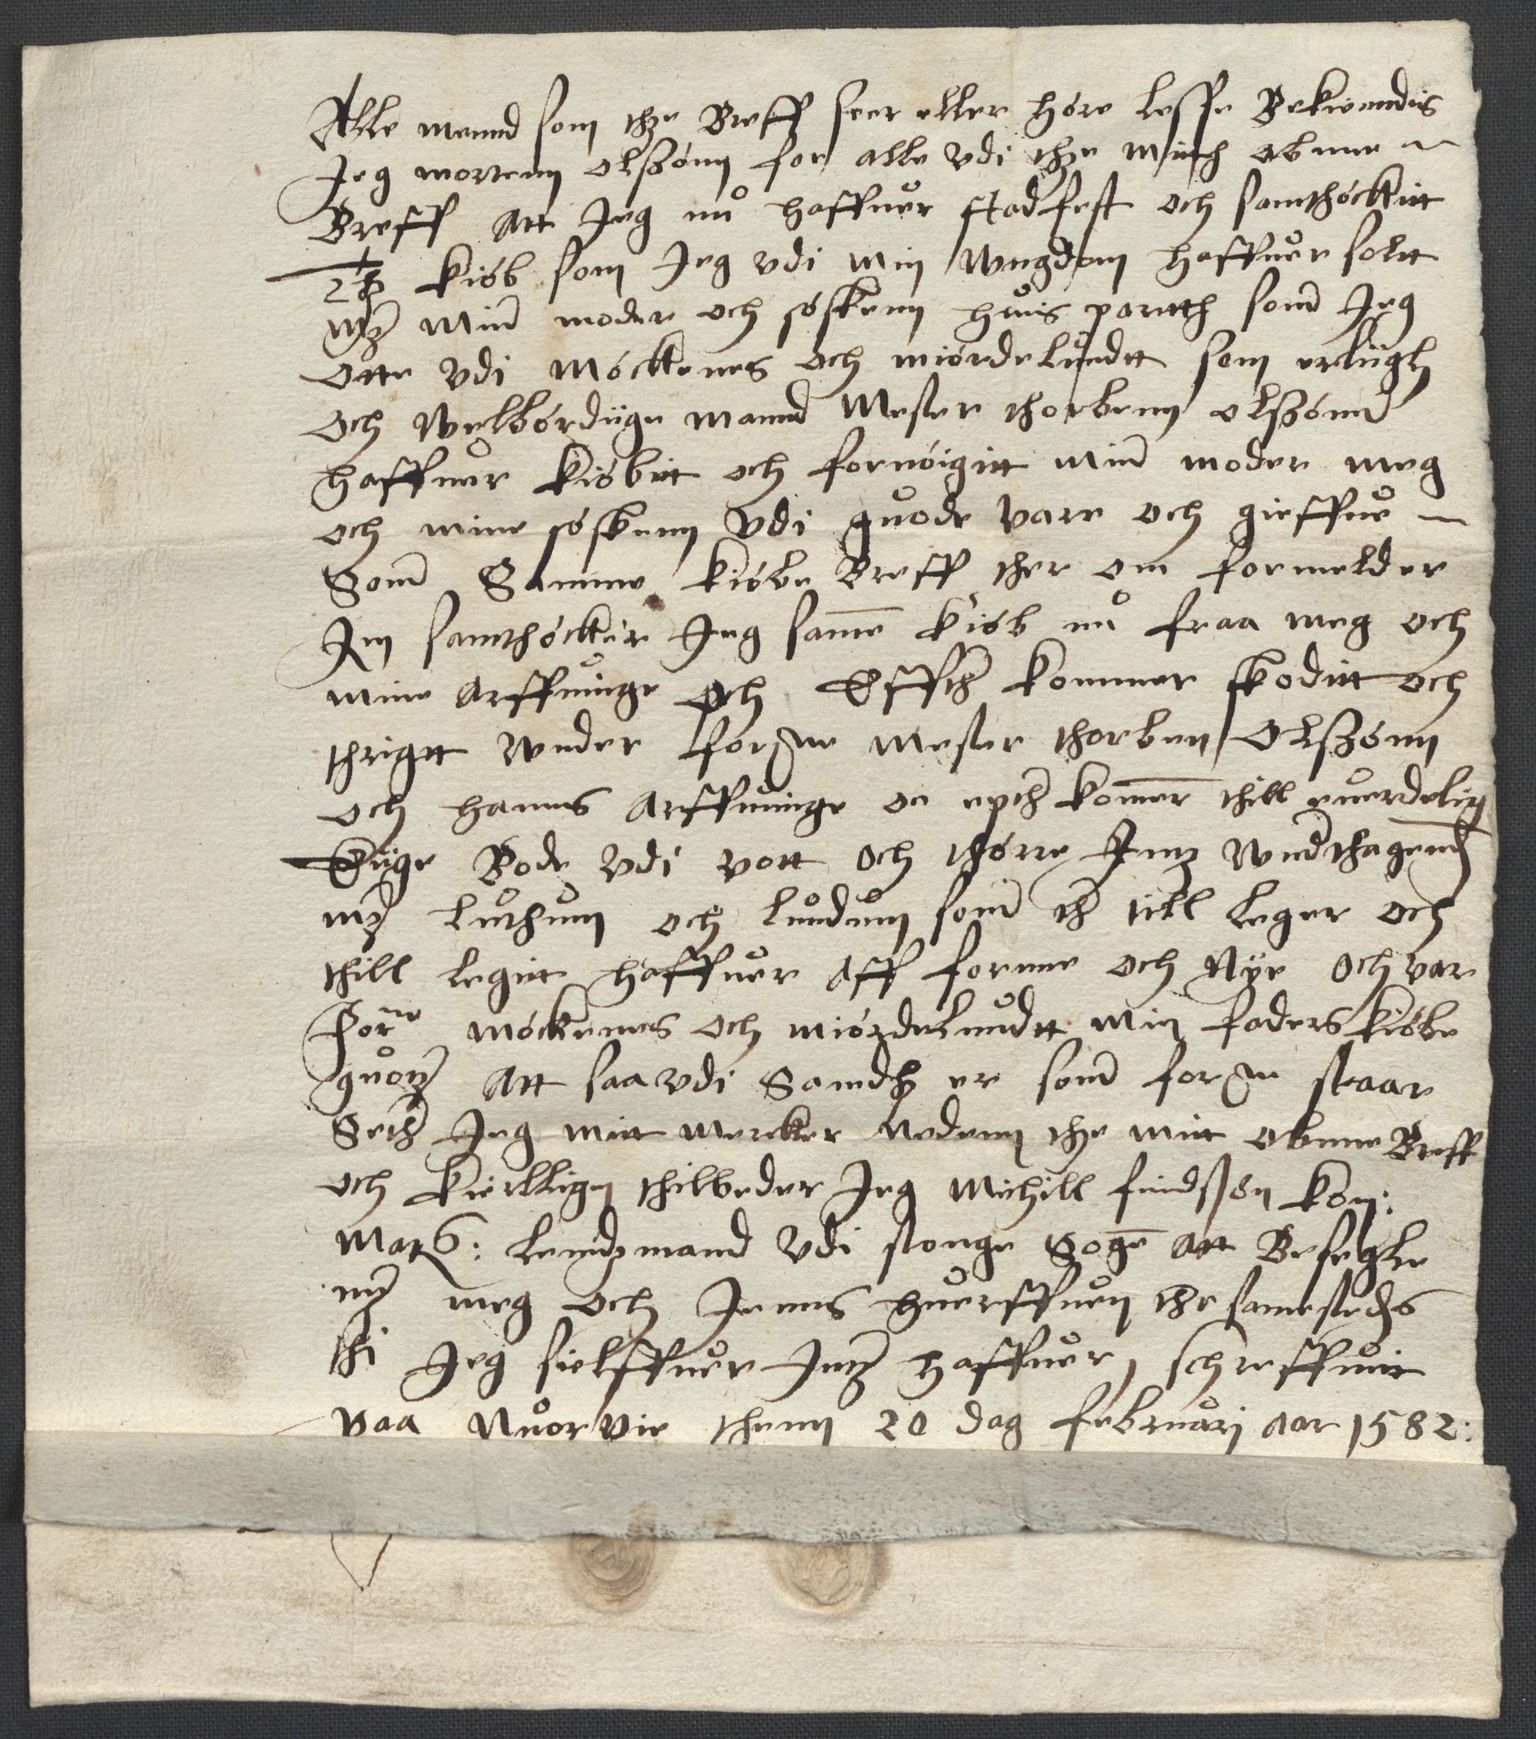 Alle mennd som thz Breff seer eller høre lesse Bekiendis
Jeg mortenn olszønn for alle vdi thz mith obnne
Breff Att Jeg nu haffuer stadfest och samthøcktt
thz kiøb som Jeg vdi min wngdom haffuer soltt
mz Min moder och søskenn huis partth som Jeg
otte vdi Møcktenes och miørdelundtt som erligh
och welbørdige mannd Mester thorbenn olszønn
haffuer kiøbtt och fornøigitt min moder meg
och mine søskenn vdi guode vare och gieffue
Som Samme kiøbe Breff ther om formelder
Jtn samthøcker Jeg samme kiøb nu fraa meg och
mine arffuinge och Effther kommer skoditt och
thrigtt wnder forne Mester thorben Olszønn
och hanns Arffuinge oc epther kommer thill euerdelig
Eige Bode vdi vott och thørre Jntz wnderthagendh
mz luthum och lundum som ther till leger och
thill legitt haffuer Aff forme och Nye och var
forne møckenes och miørdelundtt min faders kiøbe
guotz Att saa vdi Sandh er som forne staar
Setther Jeg mitt mercker Nedenn thz mitt obnne Breff
och kierlligen thilbeder Jeg Michill findsøn kon:
Mats: lendzmand vdi stonge Sogen att Besegle
mz meg och Jenns huerffuen the samesteds
thi Jeg sielffuer Jntz haffuer, schreffuit
paa Nuor vie thenn 20 dag februarj aar 1582: